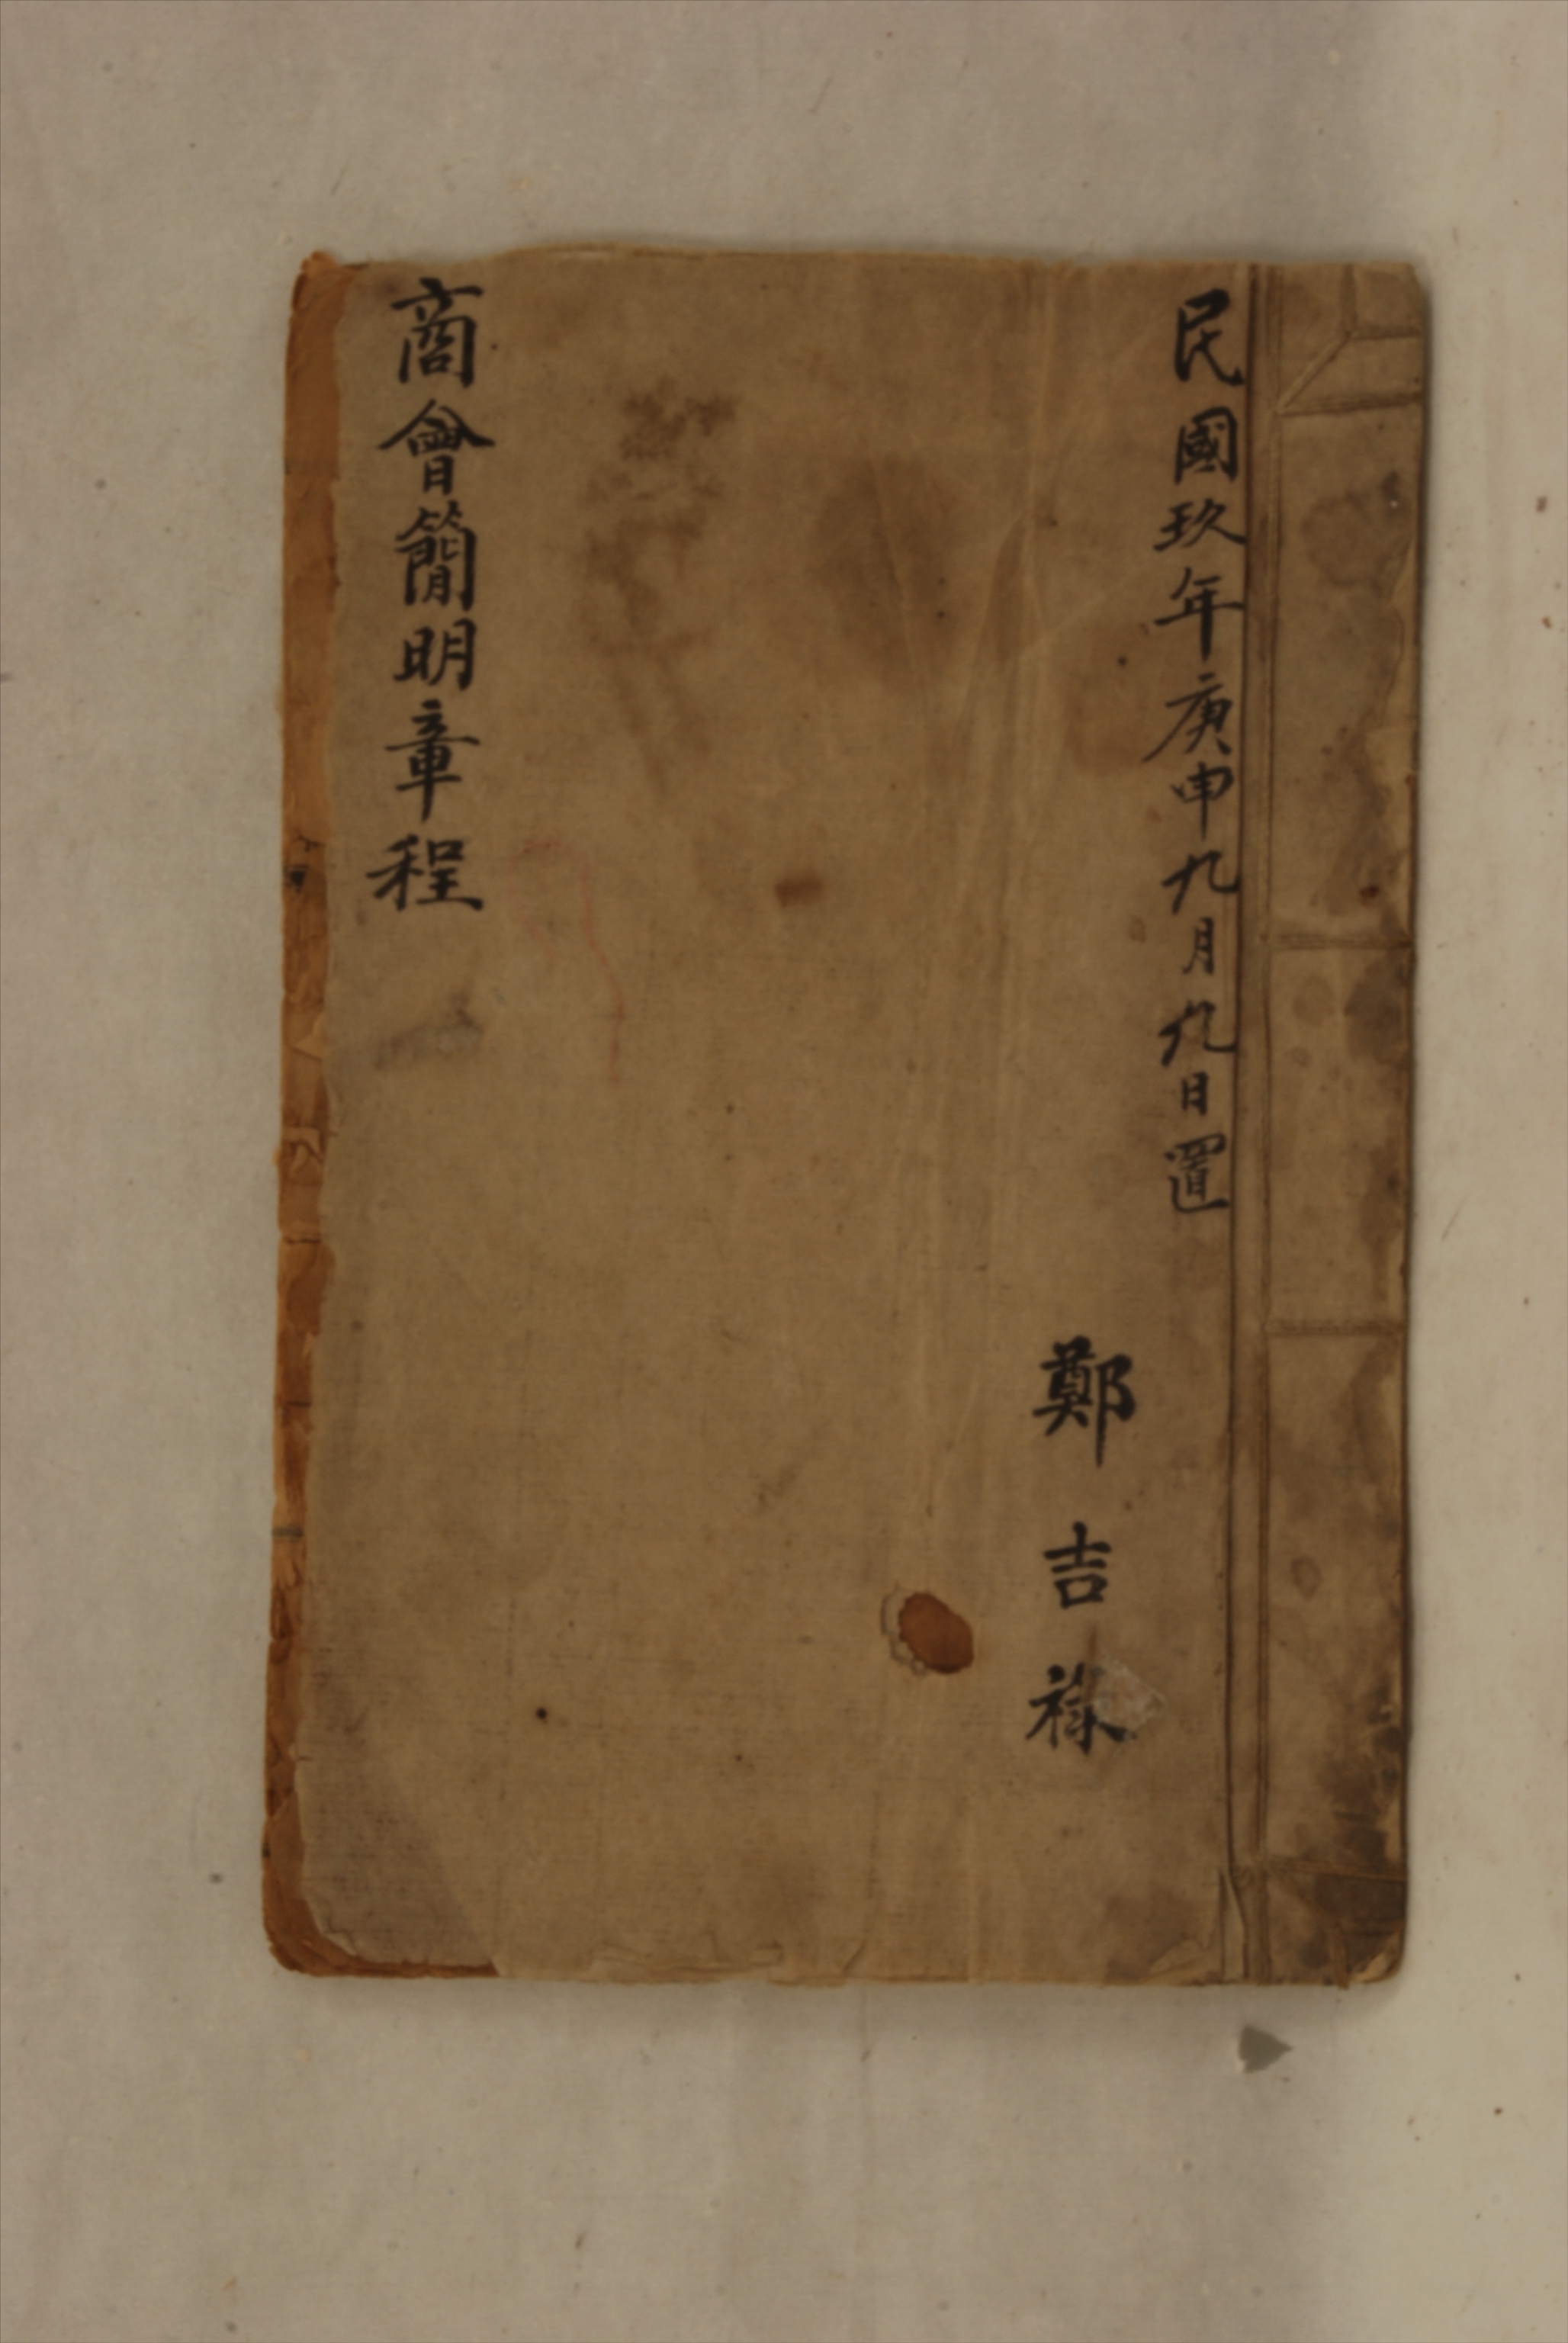 民國玖年庚申九月九日置
鄭吉祿
商會簡明章程